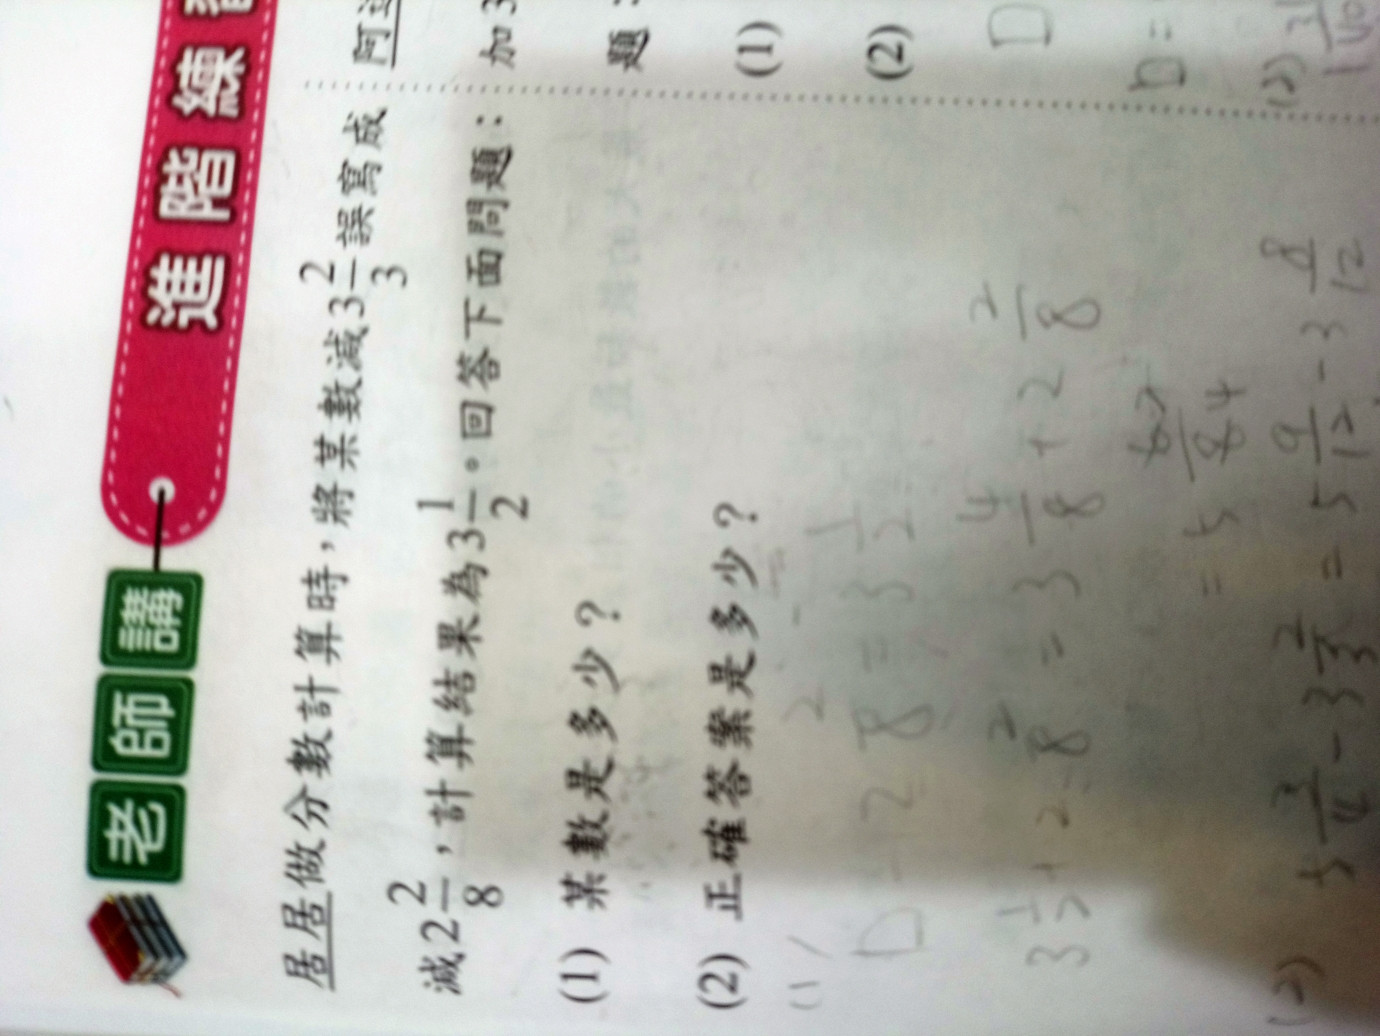 老師講 進階練
居居做分數計算時，將某數減3 2/3 誤寫成
減2 2/8，計算結果為3 1/2。回答下面問題：
(1) 某數是多少？
(2) 正確答案是多少？
(1)
□ - 2 2/8 = 3 1/2
3 1/2 + 2 2/8 = 3 4/8 + 2 2/8
(2) 5 3/4 - 3 2/3 = 5 9/12 - 3 8/12
阿
加3
題：
(1)
(2)